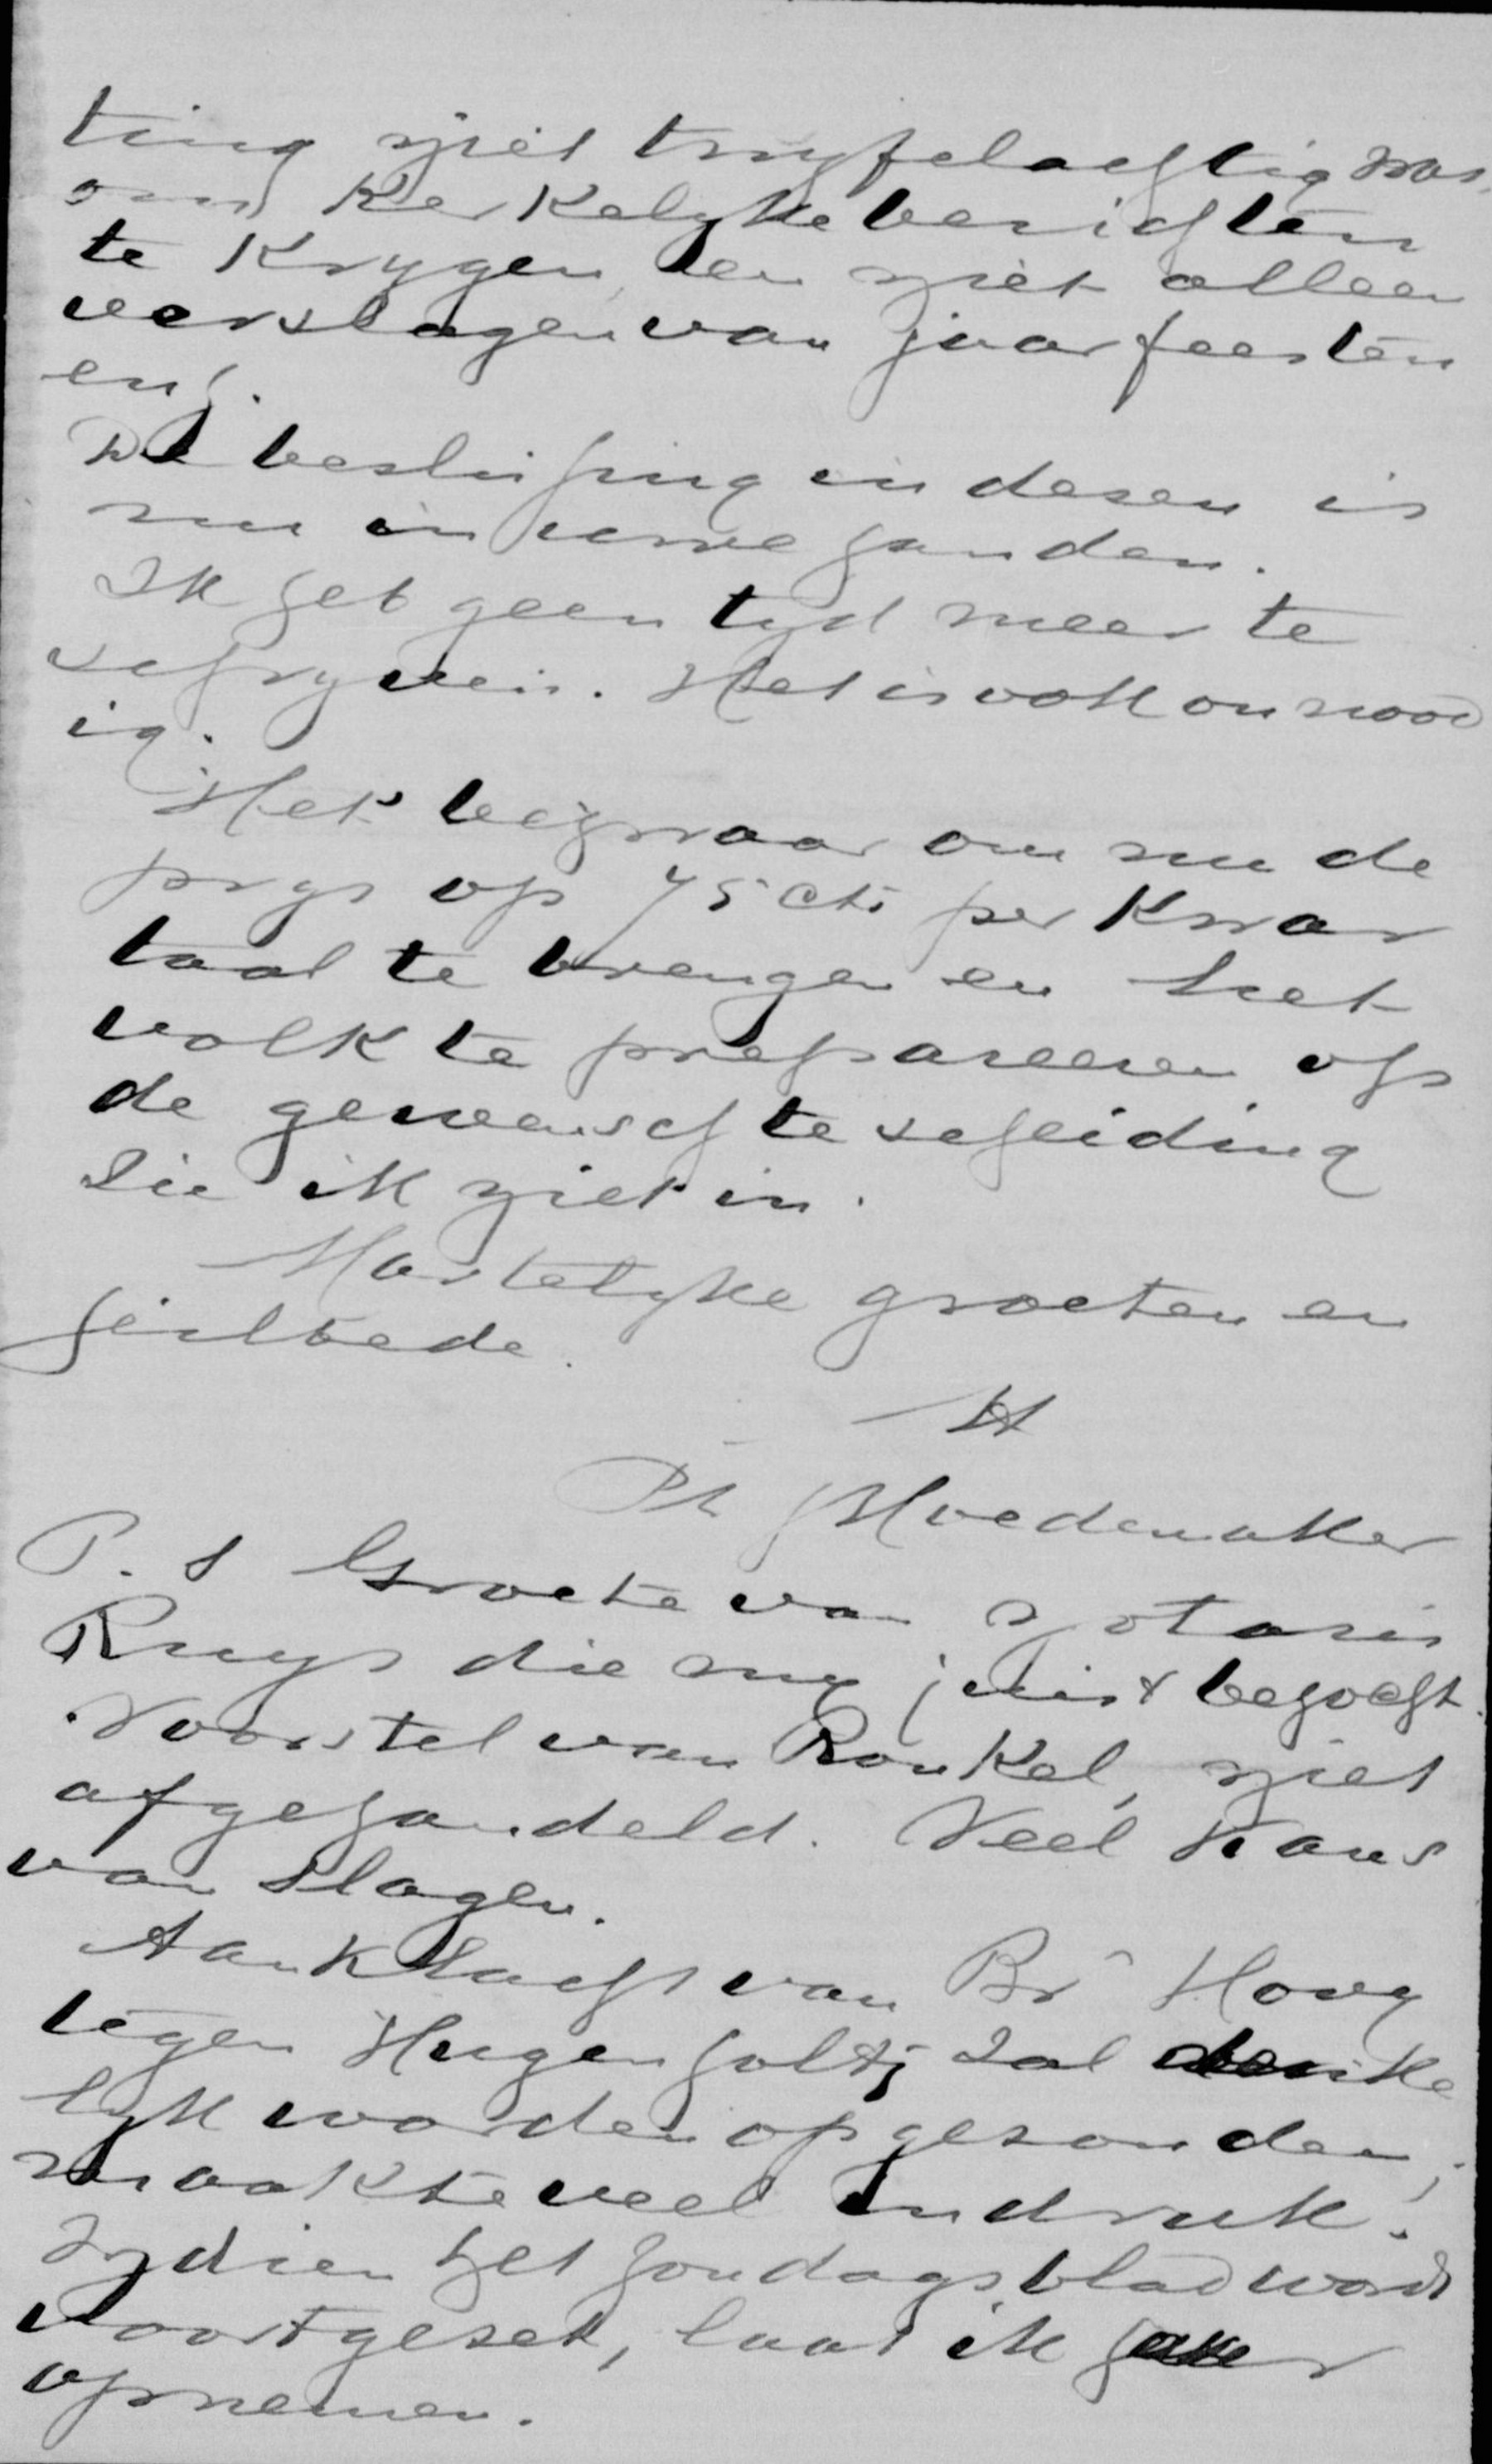 ting niet twyfelachtig was,
om Kerkelyke berichten
te Krygen, en niet alleen
verslagen van jaarfeesten
enz.
De beslissing in dezen is
nu in uwe handen.
Ik heb geen tyd meer te
schryven. Het is ook onnood
ig.
Het bezwaar om nu de
prys op 75 cts per Kwar
taal te brengen en het
volk te prepareeren op
de gewenschte scheiding
zie ik niet in.
Hartelyke groeten en
heilbede.
tt
Ph J Hoedemaker
P. S Groete van Notaris
Ruys die my juist bezocht.
Voorstel van Ronkel, niet
afgehandeld. Veel Kans
van slagen.
Aanklacht van Br Hoog
tegen Hugenholtz zal denke
lyk worden opgezonden;
maakte veel indruk.
Indien het Zondagsblad word
voortgezet, laat ik haar
opnemen.